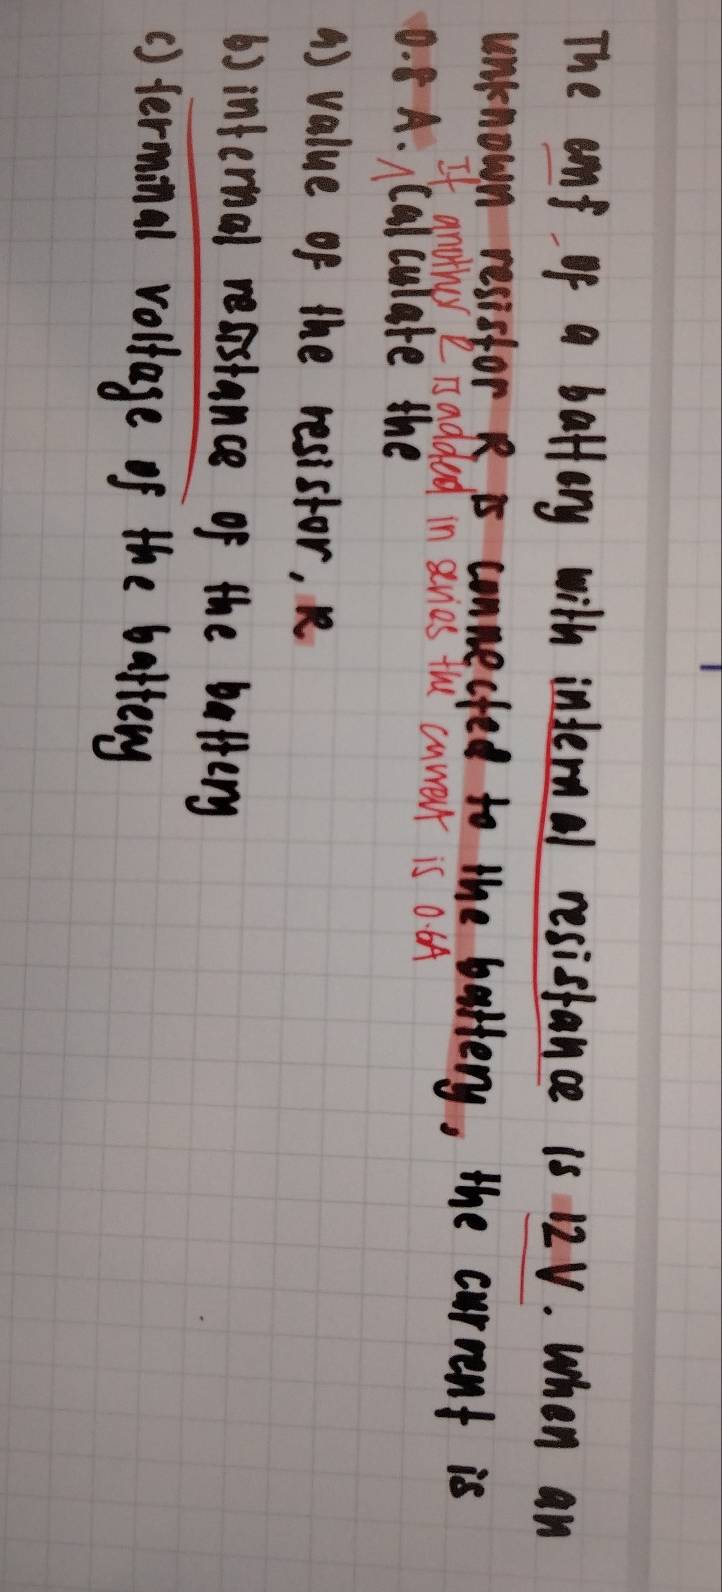 The emf of a battery with internal resistance is 12 V. When an
unknown resistor R is connected to the battery, the current is
If another R is added in series the current is 0.6A
0.8 A. Calculate the
a) value of the resistor, R
b) internal resistance of the battery
c) terminal voltage of the battery